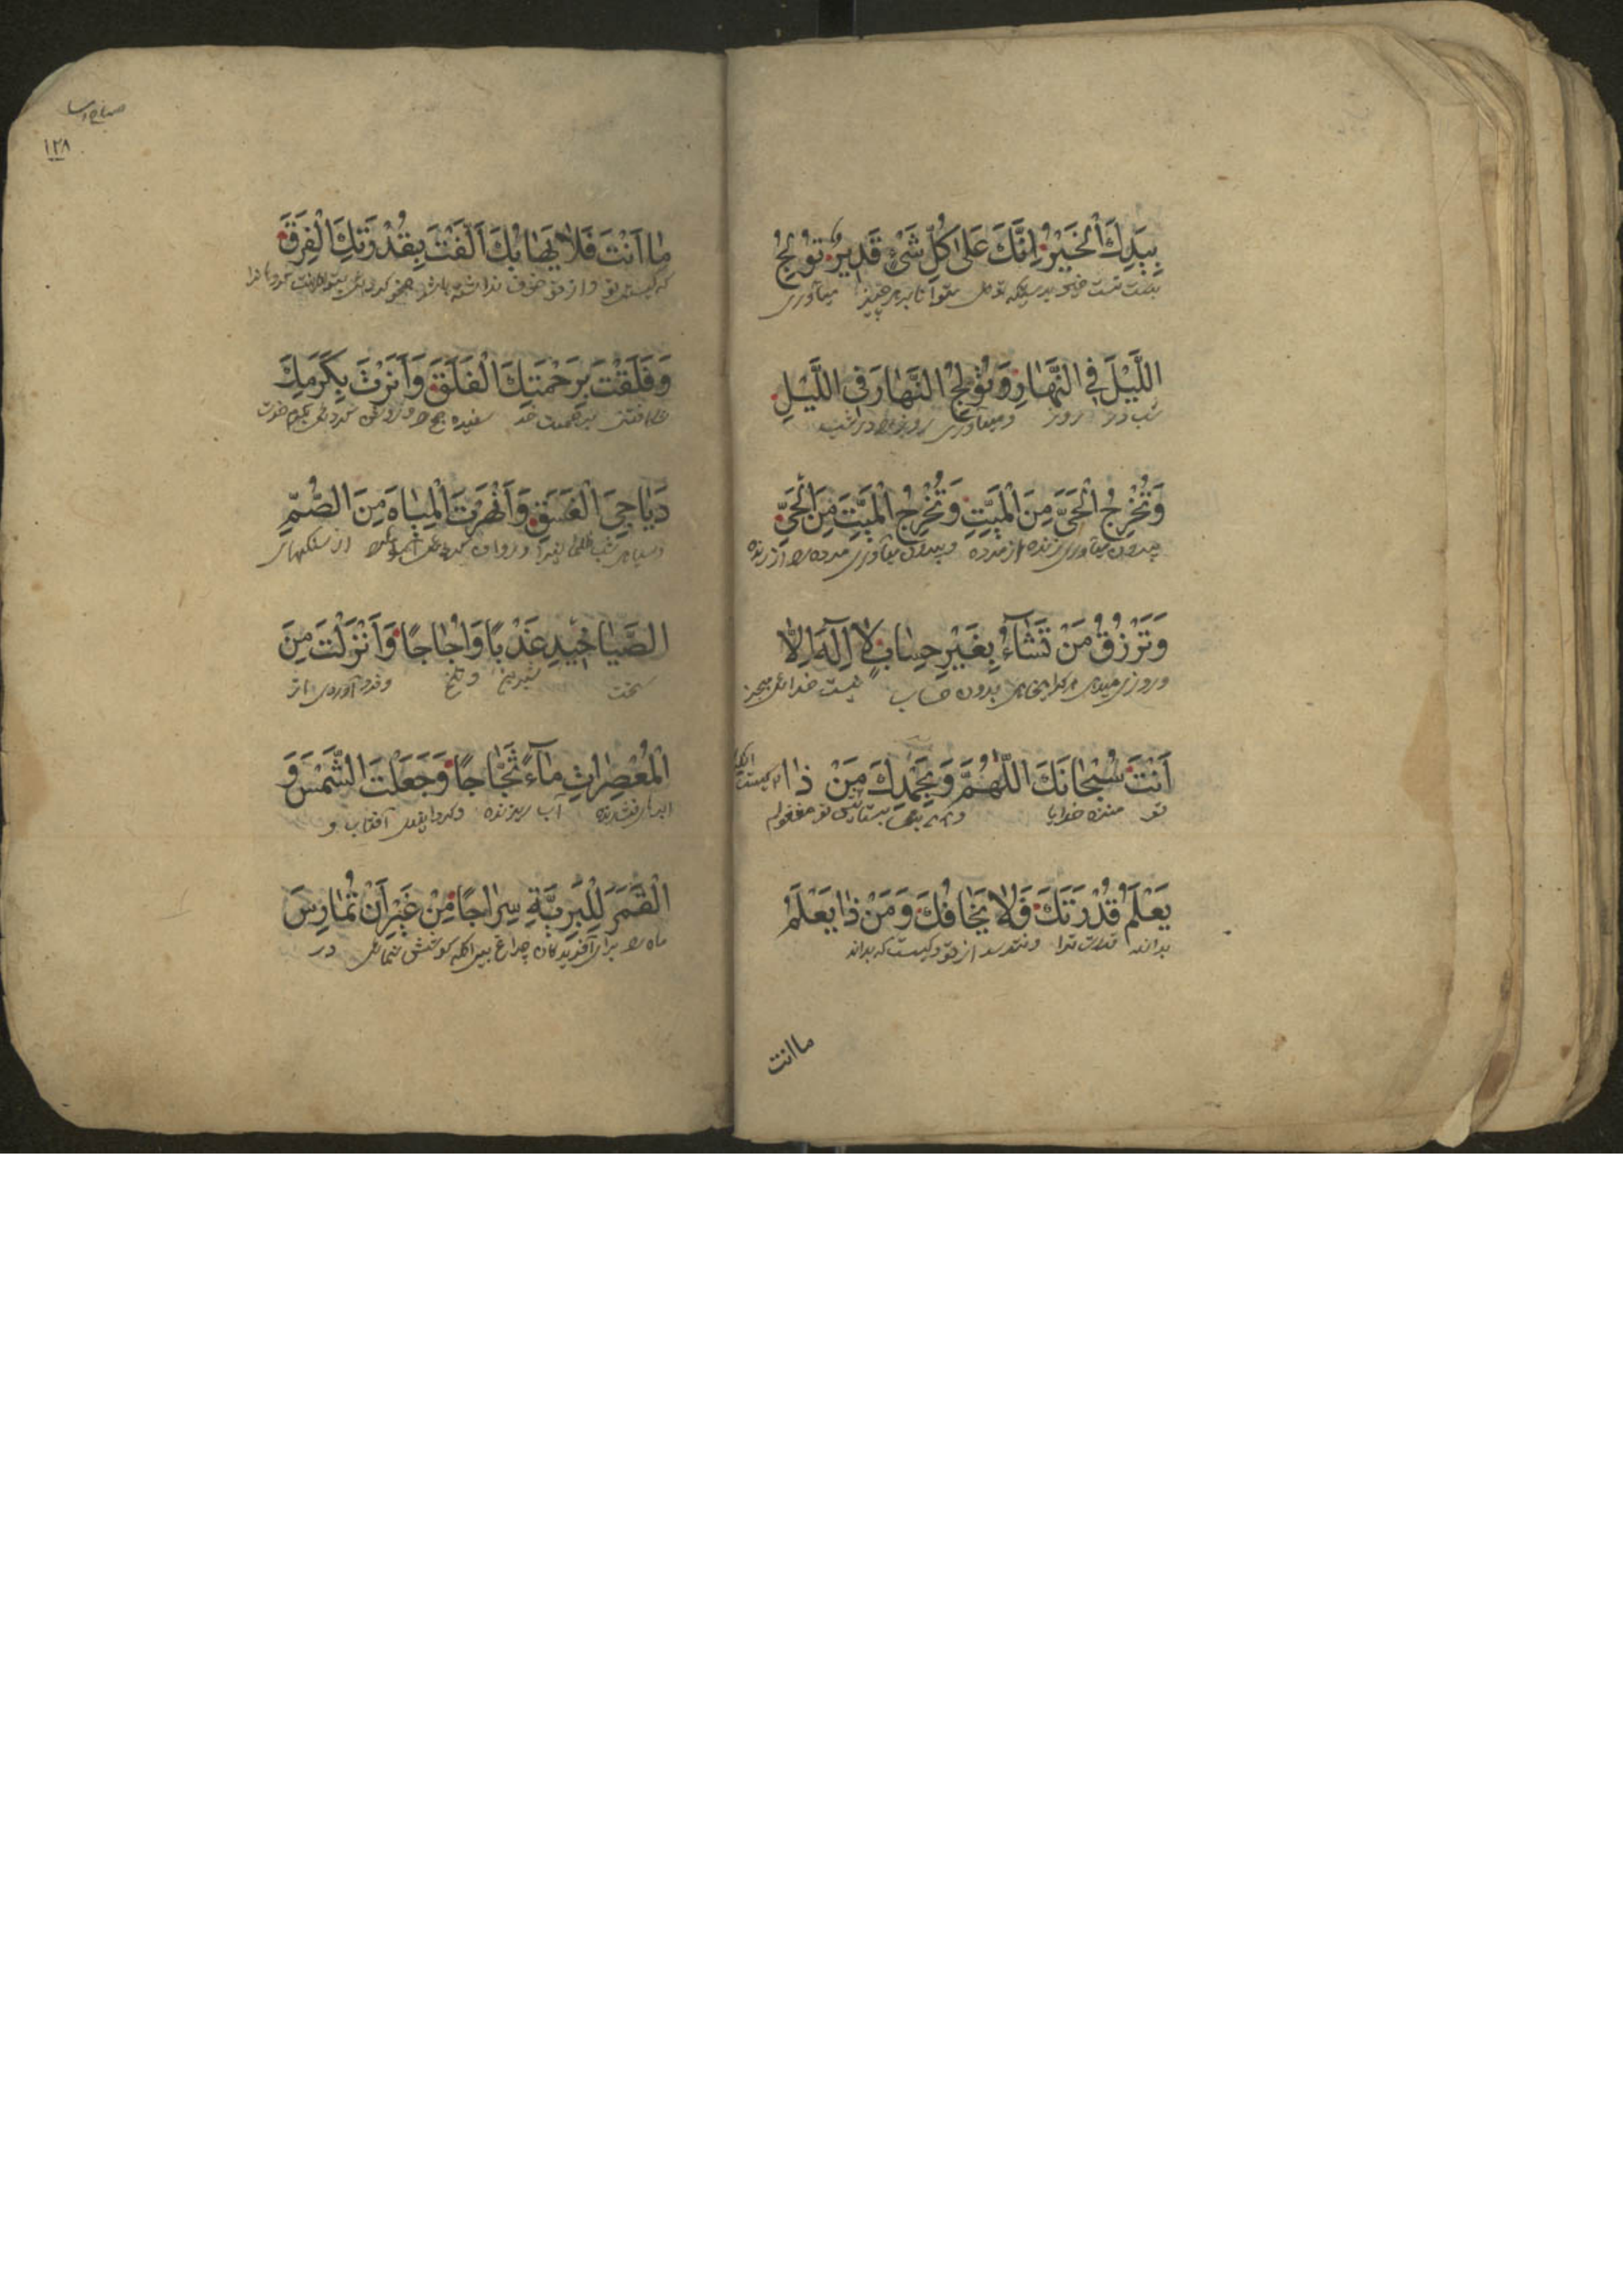 بِيَدِكَ الْخَيْرُ اِنَّكَ عَلٰى كُلِّ شَیْءٍ قَدِيرٌ تُولِجُ
بدست تست بدرستیکه توانا بر هر چیز میآوری
اللَّيْلَ فِي النَّهَارِ وَتُولِجُ النَّهَارَ فِي اللَّيْلِ
شب در روز و میآوری روز را در شب
وَتُخْرِجُ الْحَيَّ مِنَ الْمَيِّتِ وَتُخْرِجُ الْمَيِّتَ مِنَ الْحَيِّ
بیرون میآوری زنده از مرده و بیرون میآوری مرده را از زنده
وَتَرْزُقُ مَنْ تَشَآءُ بِغَيْرِ حِسَابٍ لَا اِلٰهَ اِلَّا
و روزی میدهی هر که را بخواهی بدون حساب نیست خدائی بجز
اَنْتَ سُبْحَانَكَ اللّٰهُمَّ وَبِحَمْدِكَ مَنْ ذَا
تو منزه خدایا
يَعْلَمُ قُدْرَتَكَ فَلَا يَخَافُكَ وَمَنْ ذَا يَعْلَمُ
بداند قدرت ترا و نترسد از تو و کیست که بداند
ما انت
١٢٨
مَا اَنْتَ فَلَا يَهَابُكَ اَلَّفْتَ بِقُدْرَتِكَ الْفِرَقَ
که کیستی تو و از تو خوف نداشته باشد
وَفَلَقْتَ بِرَحْمَتِكَ الْفَلَقَ وَاَنَرْتَ بِكَرَمِكَ
برحمت خود سفیده صبح را و روشن کردی بکرم خودت
دَيَاجِيَ الْغَسَقِ وَاَنْهَرْتَ الْمِيَاهَ مِنَ الصُّمِّ
از سنگهای
الصَّيَاخِيدِ عَذْبًا وَاُجَاجًا وَاَنْزَلْتَ مِنَ
سخت شیرین و تلخ و فرود آوردی از
الْمُعْصِرَاتِ مَآءً ثَجَّاجًا وَجَعَلْتَ الشَّمْسَ وَ
ابرهای فشارنده آب ریزنده آفتاب و
الْقَمَرَ لِلْبَرِيَّةِ سِرَاجًا مِنْ غَيْرِ اَنْ تُمَارِسَ
ماه را برای آفریدگان چراغ در